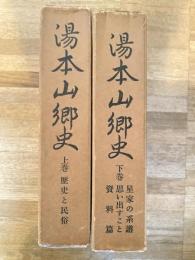 湯本山郷史
上巻 歴史と民俗
湯本山郷史
下巻
星家の系譜
思い出すこと
資料篇